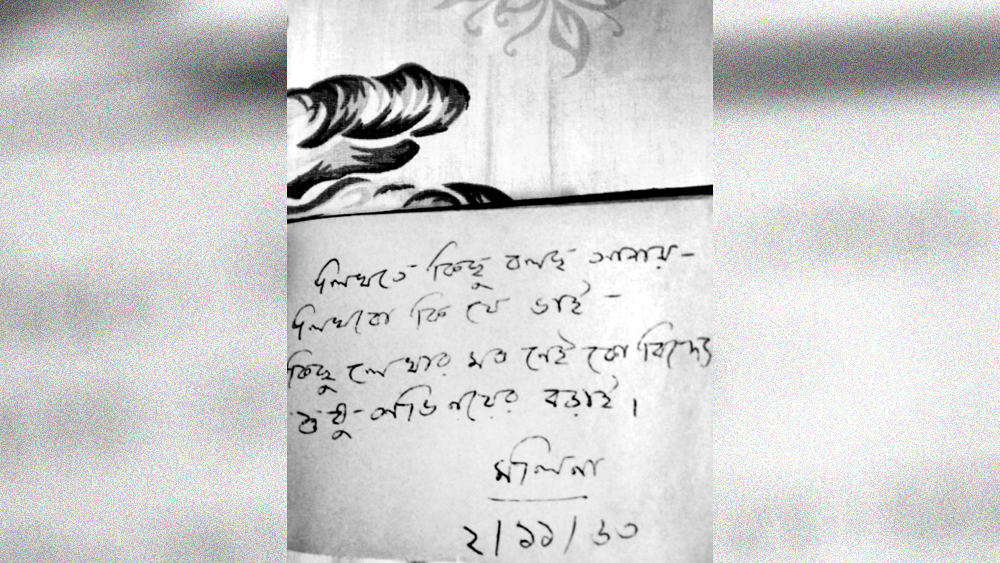 লিখতে কিছু বলছ আমায়-
লিখবো কি যে ভাই -
কিছু লেখার মত নেই কো বিদ্যে
শুধু-অভিনয়ের বড়াই।
মলিনা
২/১১/৬০